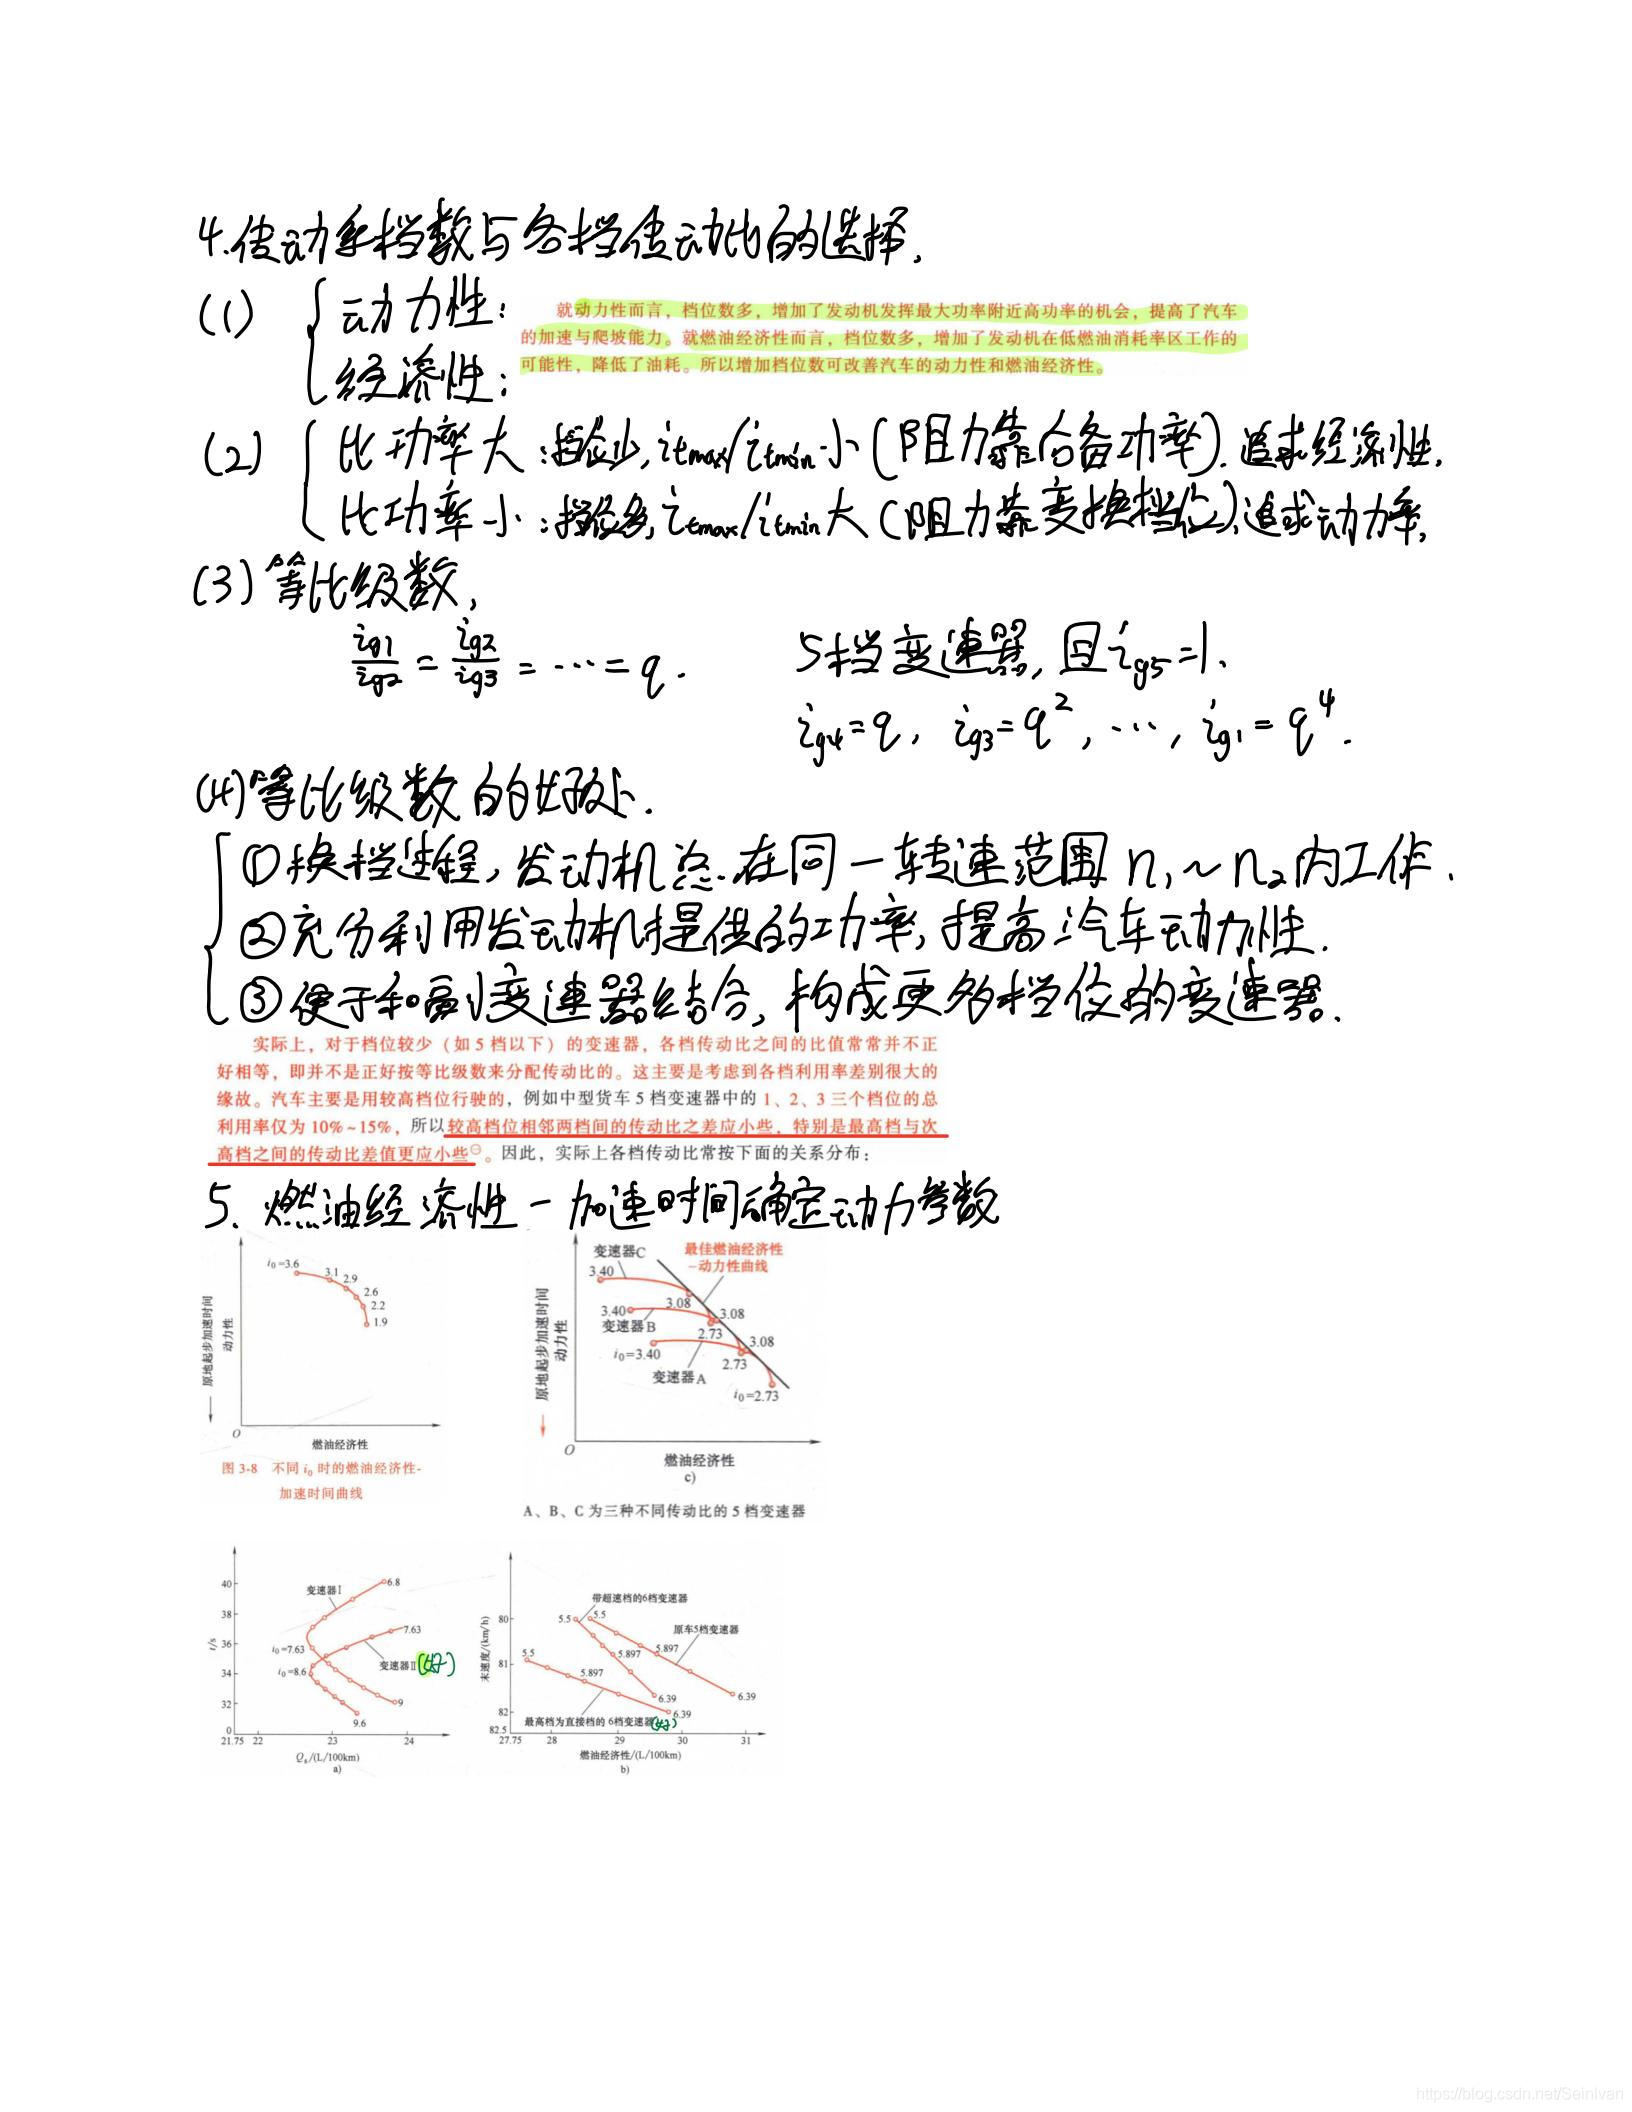 4.传动系档数与各档传动比的选择.
(1) 动力性:
就动力性而言，档位数多，增加了发动机发挥最大功率附近高功率的机会，提高了汽车
的加速与爬坡能力。就燃油经济性而言，档位数多，增加了发动机在低燃油消耗率区工作的
可能性，降低了油耗。所以增加档位数可改善汽车的动力性和燃油经济性。
经济性:
(2) 比功率大:挡位少, itmax/itmin小(阻力靠后备功率).追求经济性.
比功率小:挡位多, itmax/itmin大(阻力靠变换挡位),追求动力率,
(3)等比级数,
ig1/ig2 = ig2/ig3 = ... = q.
5档变速器,且ig5=1.
ig4=q, ig3=q², ..., ig1=q⁴.
(4)等比级数的好处.
①换档过程,发动机总.在同一转速范围n₁~n₂内工作.
②充分利用发动机提供的功率,提高汽车动力性.
③便于和副变速器结合,构成更多档位的变速器.
实际上，对于档位较少（如5档以下）的变速器，各档传动比之间的比值常常并不正
好相等，即并不是正好按等比级数来分配传动比的。这主要是考虑到各档利用率差别很大的
缘故。汽车主要是用较高档位行驶的，例如中型货车5档变速器中的1、2、3三个档位的总
利用率仅为10%~15%，所以较高档位相邻两档间的传动比之差应小些，特别是最高档与次
高档之间的传动比差值更应小些㊀。因此，实际上各档传动比常按下面的关系分布：
5. 燃油经济性-加速时间确定动力参数
i0=3.6
3.1
2.9
2.6
2.2
1.9
原地起步加速时间
动力性
O
燃油经济性
图3-8 不同i0时的燃油经济性-
加速时间曲线
变速器C
最佳燃油经济性
-动力性曲线
3.40
3.08
3.40
变速器B
3.08
2.73
i0=3.40
3.08
2.73
变速器A
i0=2.73
原地起步加速时间
动力性
O
燃油经济性
c)
A、B、C为三种不同传动比的5档变速器
t/s
40
38
36
34
32
0
变速器I
6.8
7.63
i0=7.63
变速器II(好)
i0=8.6
9
9.6
21.75 22 23 24
Qs/(L/100km)
a)
末速度/(km/h)
80
81
82
82.5
带超速档的6档变速器
5.5
5.5
原车5档变速器
5.5
5.897
5.897
5.897
6.39
6.39
6.39
最高档为直接档的6档变速器(好)
27.75 28 29 30 31
燃油经济性/(L/100km)
b)
https://blog.csdn.net/SeinIvan